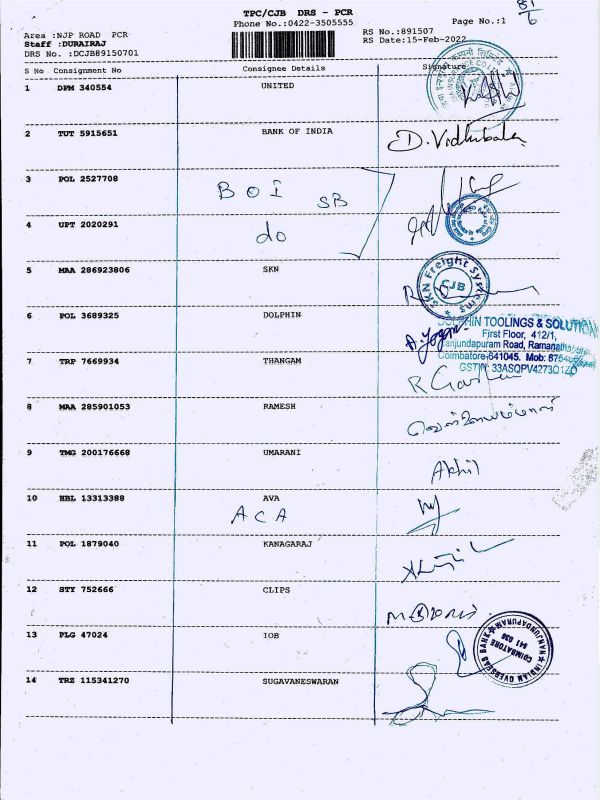 TPC/CJB DRS - PCR
Phone No.:0422-3505555
Page No.:1
Area :NJP ROAD PCR
RS No.:891507
Staff :DURAIRAJ
RS Date:15-Feb-2022
DRS No. :DCJB89150701
S No Consignment No Consignee Details Signature
1 DPM 340554 UNITED
2 TUT 5915651 BANK OF INDIA D. Vidhubala
3 POL 2527708 BOI SB
4 UPT 2020291 do
5 MAA 286923806 SKN
SKN Freight Systems
CJB
6 POL 3689325 DOLPHIN
TOOLINGS & SOLUTION
First Floor, 412/1,
Nanjundapuram Road, Ramanathapuram
Coimbatore-641045. Mob:
GSTIN: 33ASQPV4273Q1ZO
7 TRP 7669934 THANGAM
8 MAA 285901053 RAMESH
9 TMG 200176668 UMARANI Akhil
10 HBL 13313388 AVA
ACA
11 POL 1879040 KANAGARAJ
12 STY 752666 CLIPS
13 PLG 47024 IOB
INDIAN OVERSEAS BANK
NANJUNDAPURAM
COIMBATORE
641 036
14 TRZ 115341270 SUGAVANESWARAN